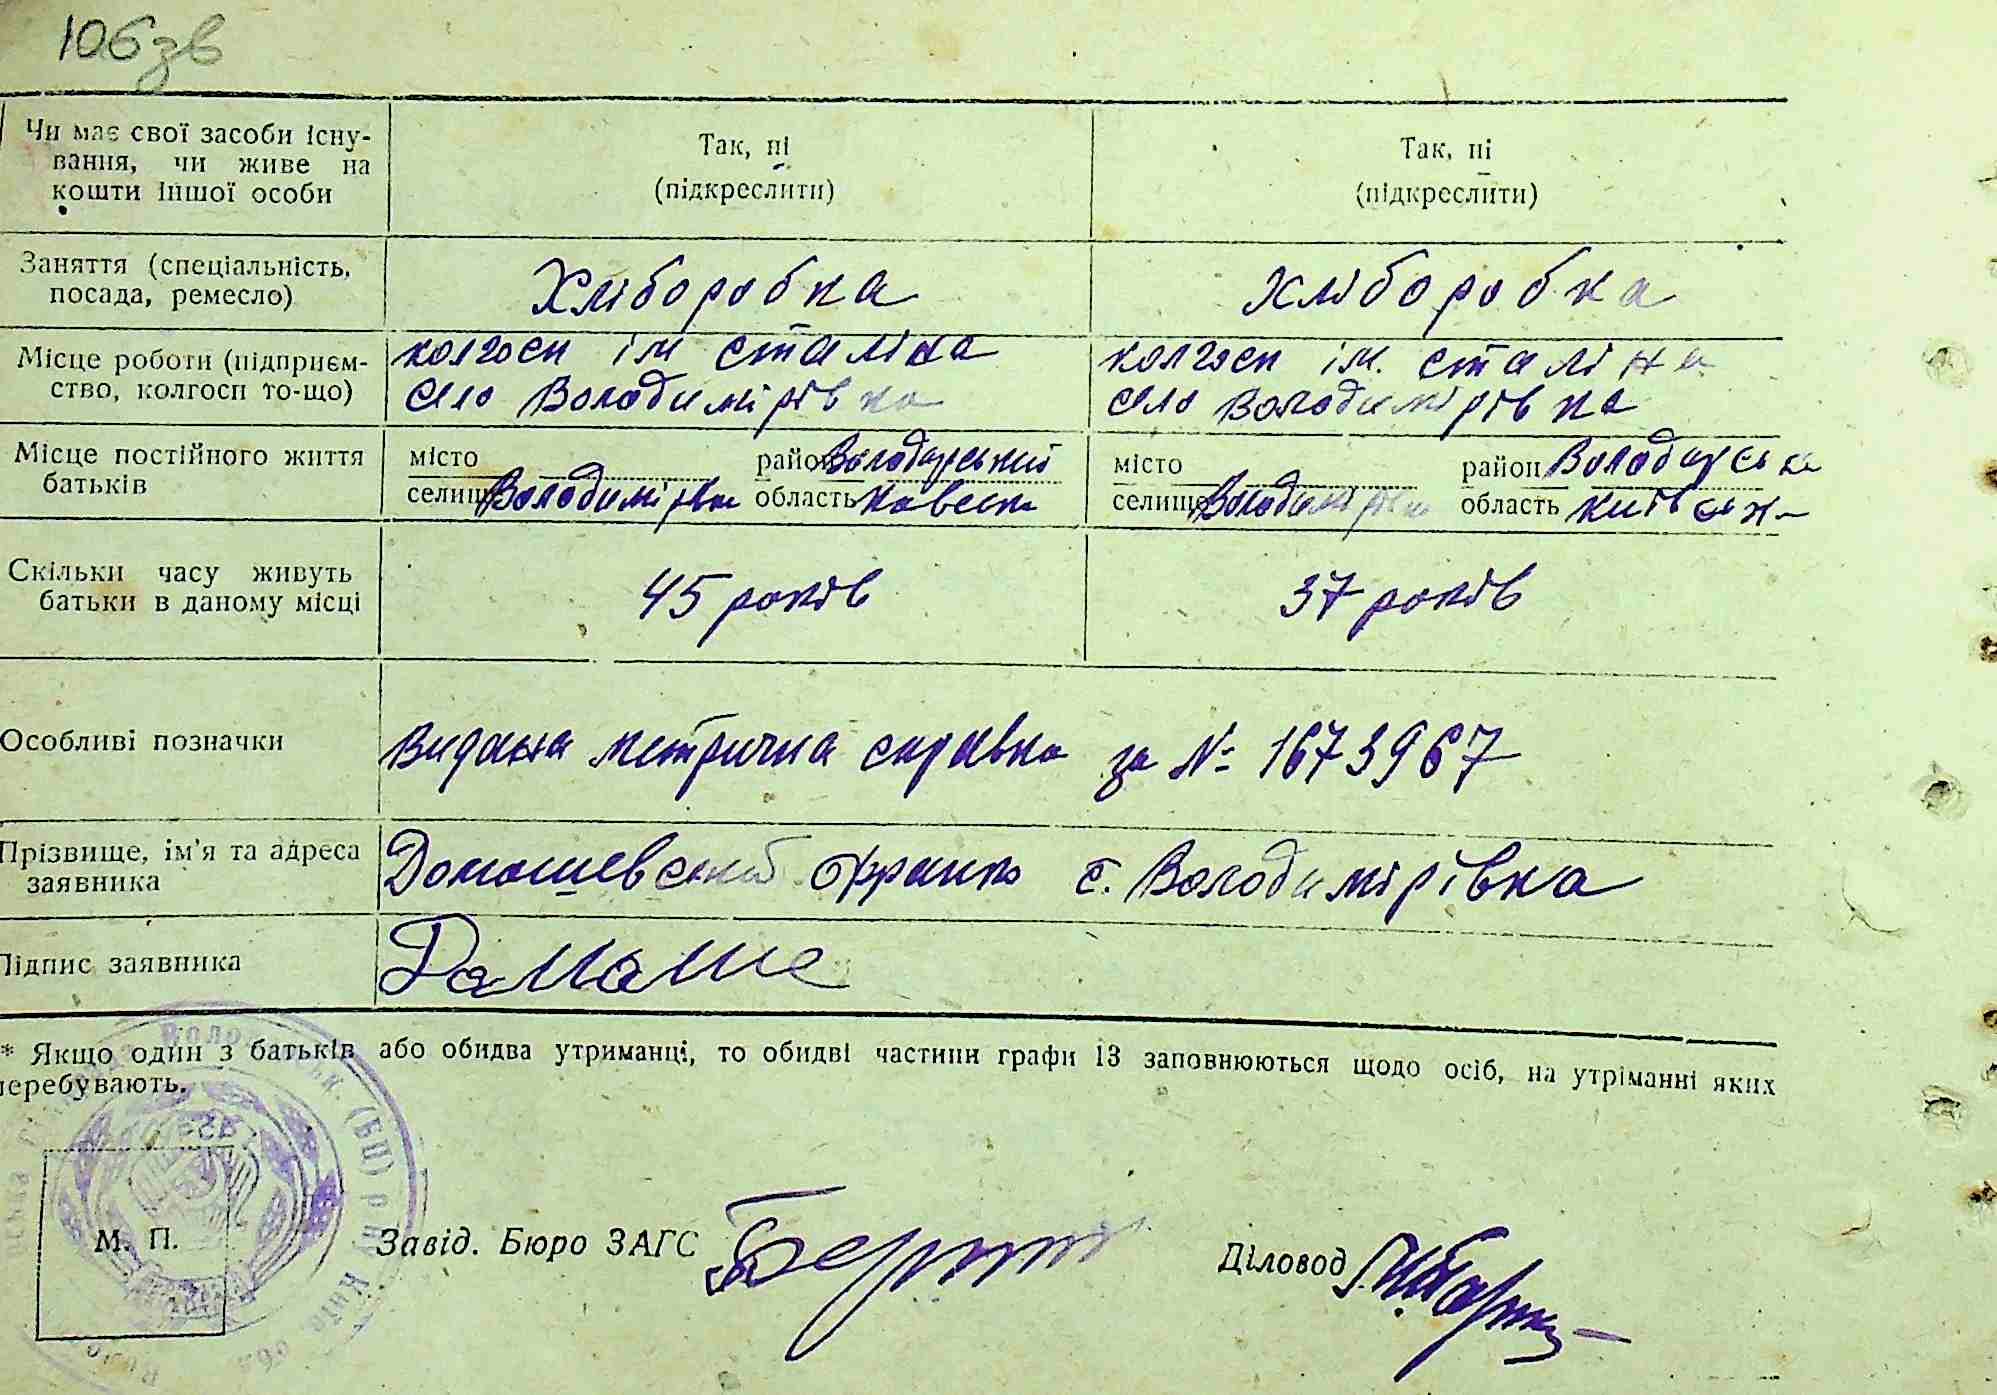 106зв
Чи має свої засоби існу-
вання, чи живе на
кошти іншої особи
Так, ні
(підкреслити)
Так, ні
(підкреслити)
Заняття (спеціальність,
посада, ремесло)
Хліборобка
Хліборобка
Місце роботи (підприєм-
ство, колгосп то-що)
колгосп ім сталіна
село Володимірівка
колгосп ім. сталіна
село Володимірівка
Місце постійного життя
батьків
місто район Володарський
селище Володимірівка область
місто район Володарська
селище Володимірівка область Київськ
Скільки часу живуть
батьки в даному місці
45 років
37 років
Особливі позначки
Видана метрична справка за № 1673967
Прізвище, ім'я та адреса
заявника
Домашевский Франко с. Володимірівка
Підпис заявника
Домаше
* Якщо один з батьків або обидва утриманці, то обидві частини графи 13 заповнюються щодо осіб, на утріманні яких
перебувають.
М. П.
Завід. Бюро ЗАГС
Діловод